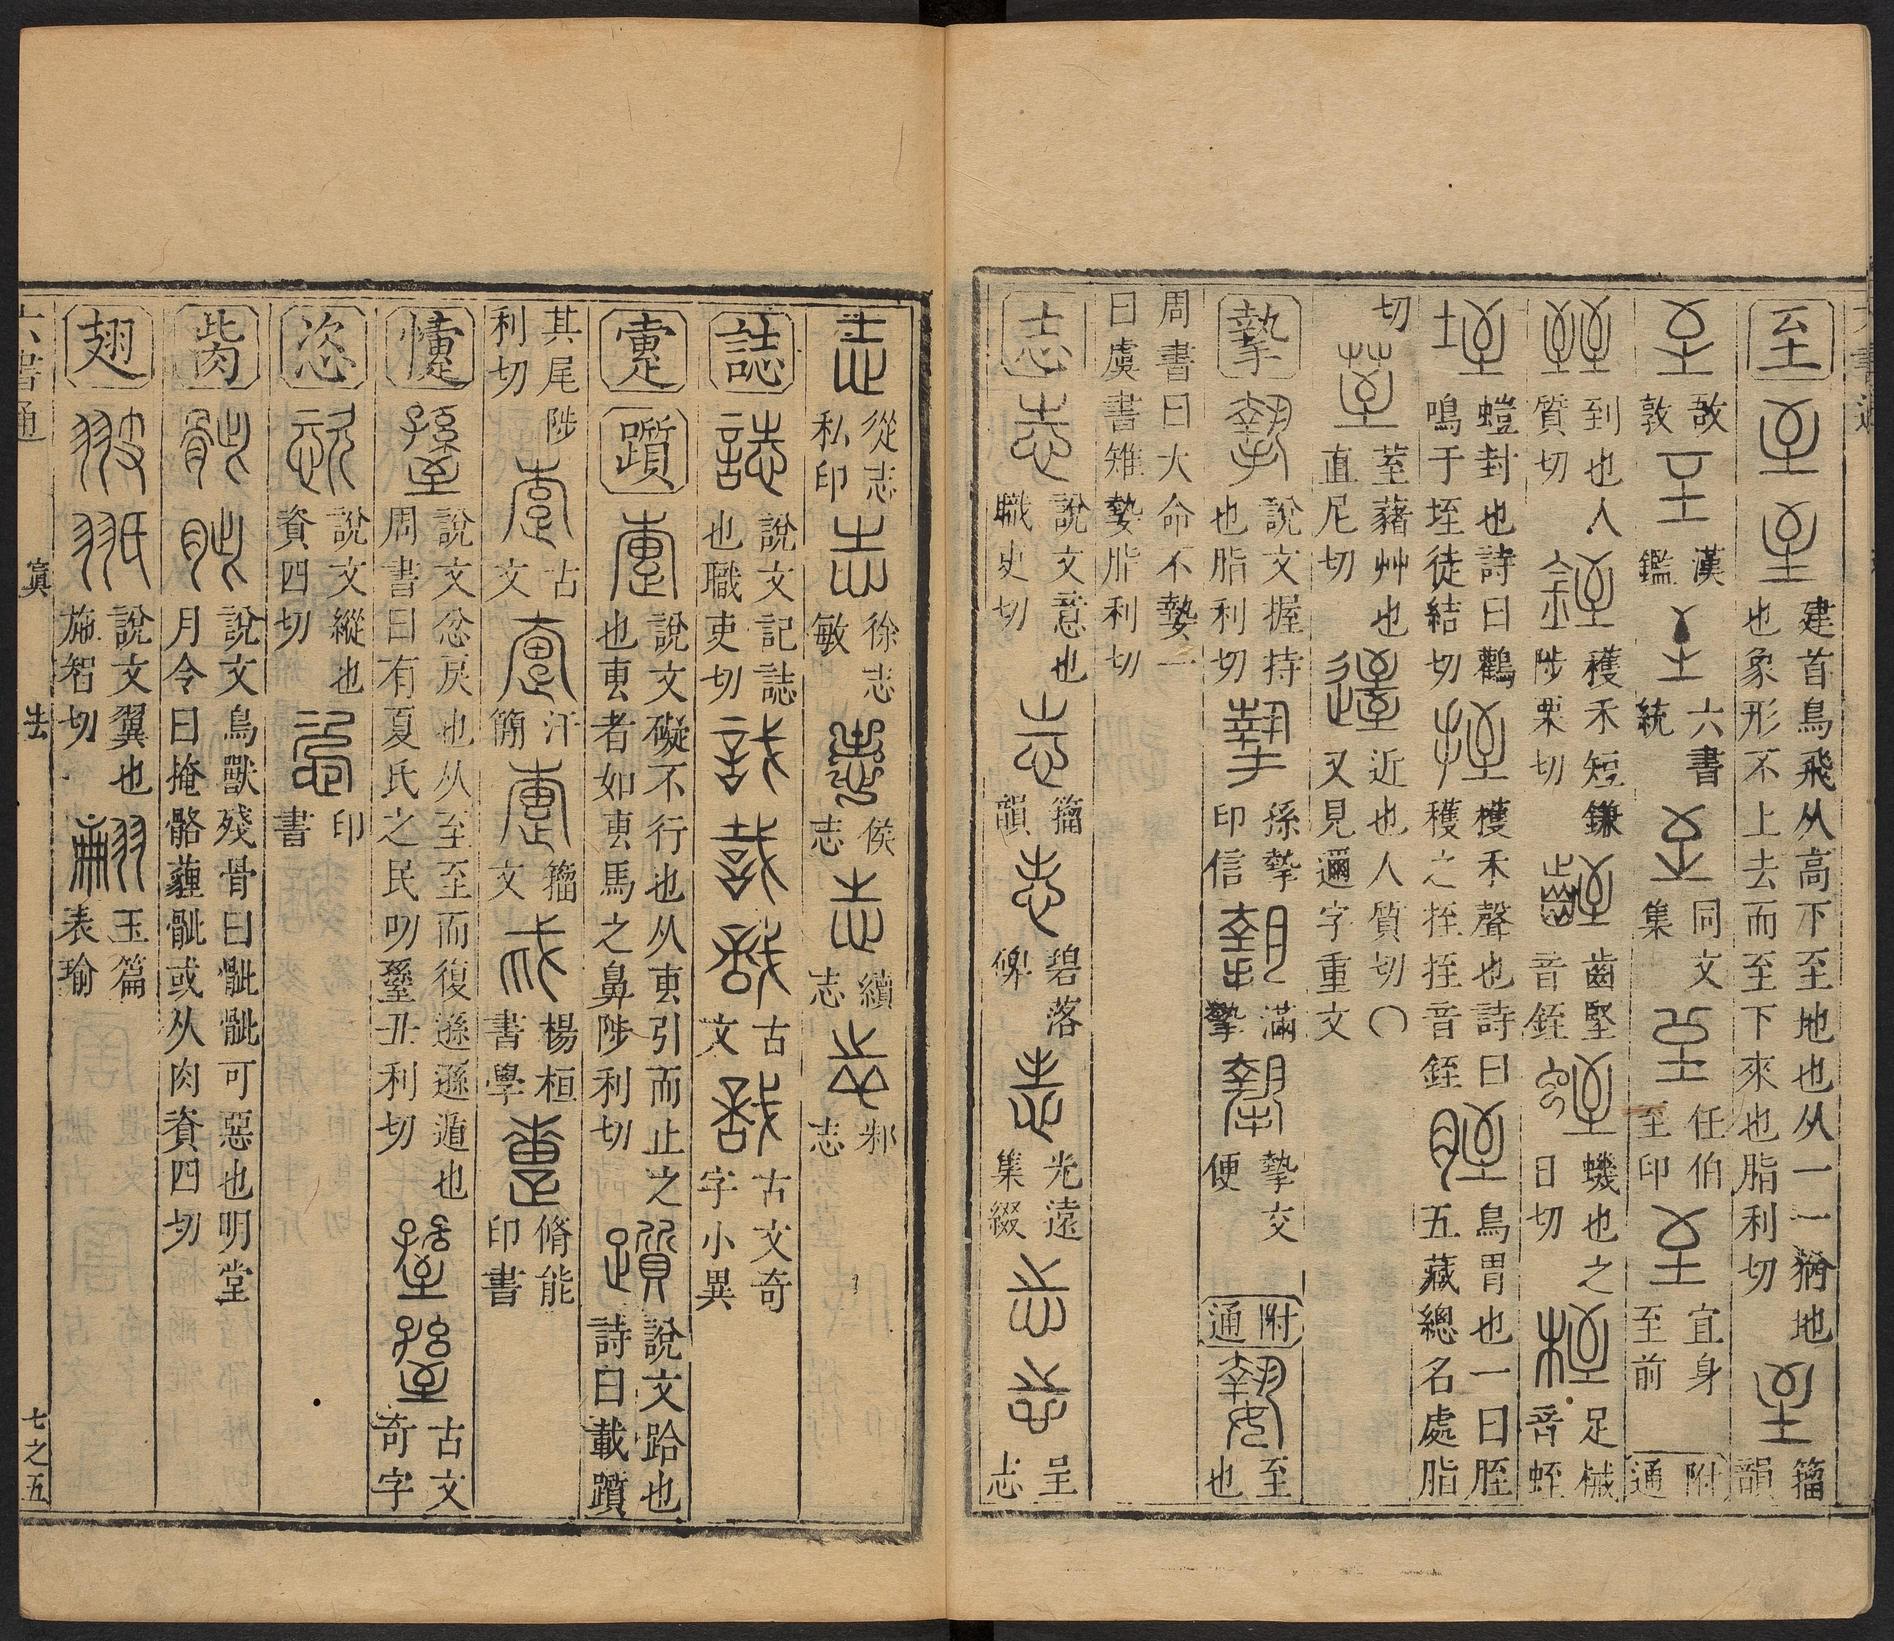 至 建首鳥飛从高下至地也从一一猶地也象形不上去而至下來也脂利切 籀韻
敄敦 漢鑑 六書統 同文集 任伯至印 宜身至前 附通
到也人質切 穫禾短鎌陟栗切 齒堅音銍 蟣也之日切 足械音蛭
螘封也詩曰鸛鳴于垤徒結切 穫禾聲也詩曰穫之挃挃音銍 鳥胃也一曰胵五藏總名處脂
切 荎藸艸也直尼切 近也人質切〇又見邇字重文
摯 說文握持也脂利切 孫摯印信 滿摯 摯交便 附通 至也
周書曰大命不𡠗一曰虞書雉𡠗脂利切
志 說文意也職吏切 籀韻 碧落碑 光遠集綴 呈志
從志私印 徐志敏 侯志志 續志 邾志
誌 說文記誌也職吏切 古文 古文奇字小異
疐 躓 說文礙不行也从叀引而止之也叀者如叀馬之鼻陟利切 說文跲也詩曰載躓
其尾陟利切 古文 汗簡 籀文 楊桓書學 脩能印書
懥 說文忿戾也从至至而復遜遜遁也周書曰有夏氏之民叨𦥎丑利切 古文奇字
恣 說文縱也資四切 印書
胔 說文鳥獸殘骨曰骴骴可惡也明堂月令曰掩骼薶骴或从肉資四切
翅 說文翼也施智切 玉篇 表瑜
六書通 寘 去 七之五